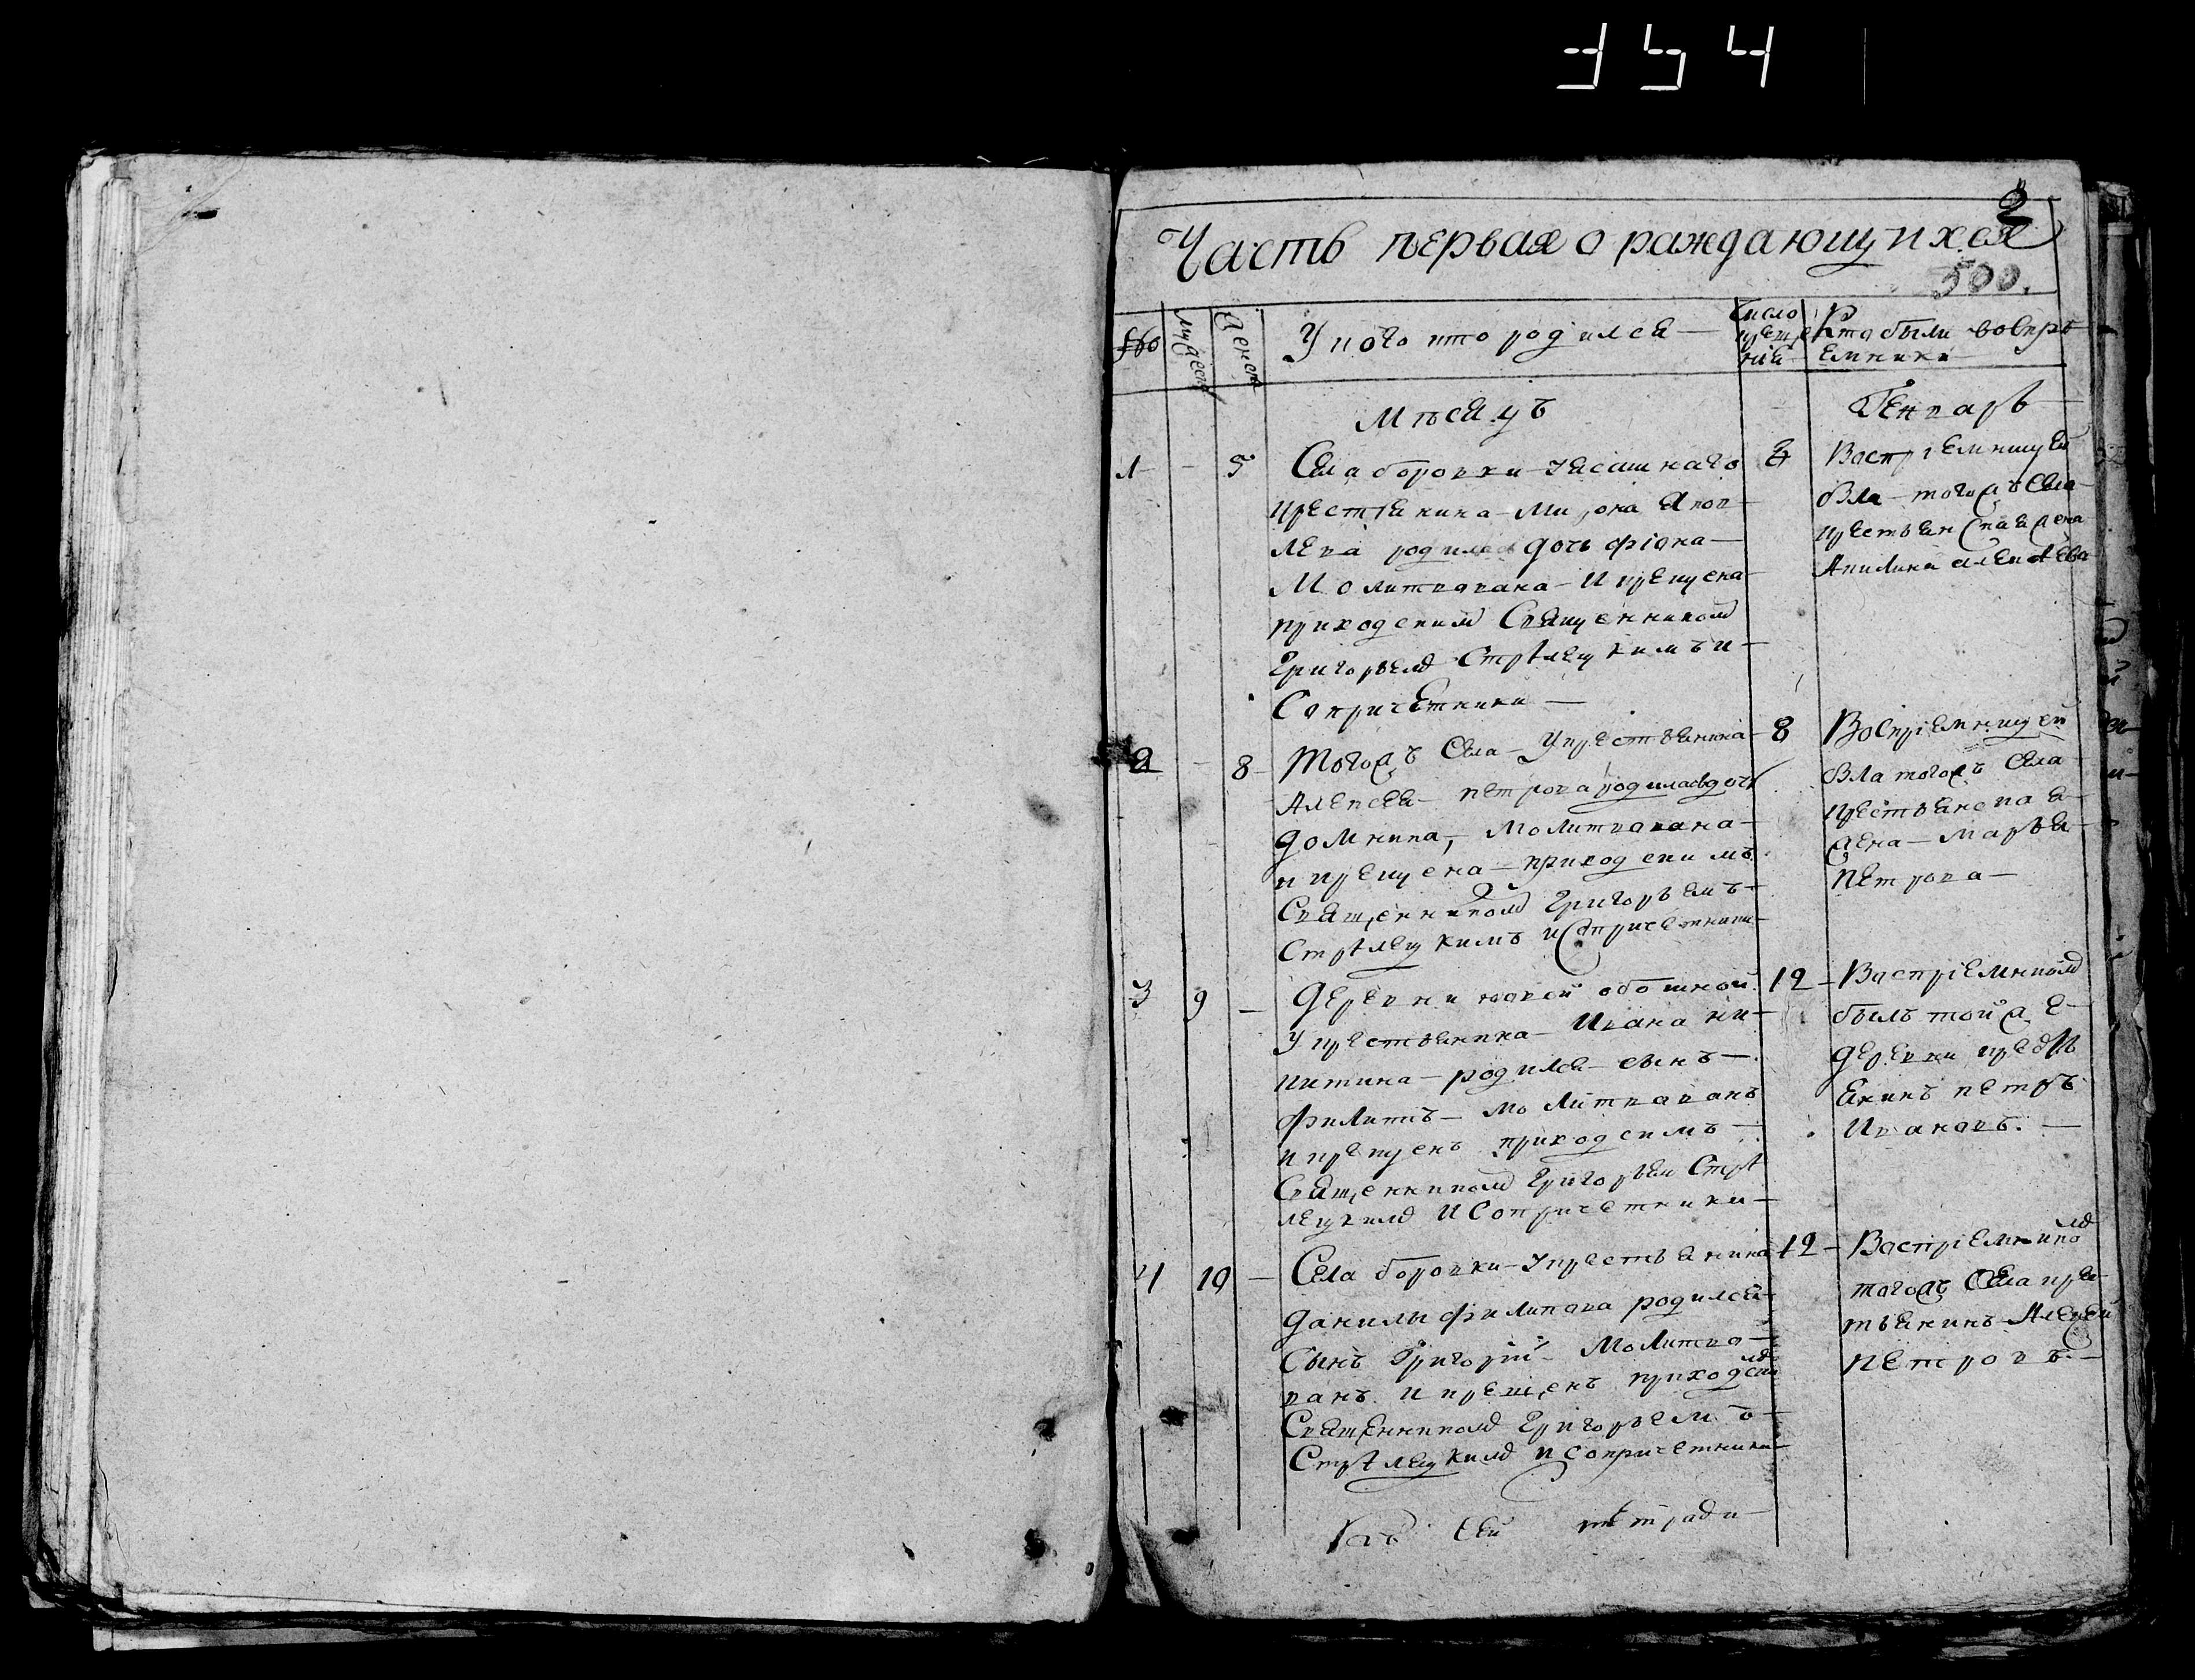 354
2
Часть первая о раждающихся
500.
Мужеск
Женск
У кого кто родился
Число креще
нія
Кто были воспрі
емники
Мѣсяцъ
Генварь
1 - 5 Села боровки Уясашнаго 8
крестьянина Мирона Яков
лева родилась дочь фіона
Молитвована И крещена
приходским Священником
Григорьем Стрѣлецкимъ и
Сопричетники
Воспріемницей
была тогожъ Села
крестьянская жена
Акилина алексѣева
2 - 8 Тогожъ Села Укрестьянина 8
Алексея петрова родилась дочь
домника, Молитвована
и крещена приходскимъ
Священником Григорьемъ
Стрѣлецкимъ и Сопричетники
Воспріемницей
была тогожъ Села
крестьянская
жена Марья
Петрова
3 9 - Деревни новой 12
У крестьянина Ивана ни
китина родился сынъ
Филиппъ Молитвованъ
и крещенъ приходскимъ
Священником Григорьем Стрѣ
лецким И Сопричетники
Воспріемником
былъ той же
деревни крестьь
янинъ петръ
Ивановъ.
4 10 - Села боровки Укрестьянина 12
данилы филипова родился
Сынъ Григорій Молитво
ванъ И крещенъ приходским
Священником Григорьемъ
Стрѣлецким И сопричетники
Воспріемником
тогожъ Села крес
тьянинъ Алексей
Петровъ.
Къ сей тетради